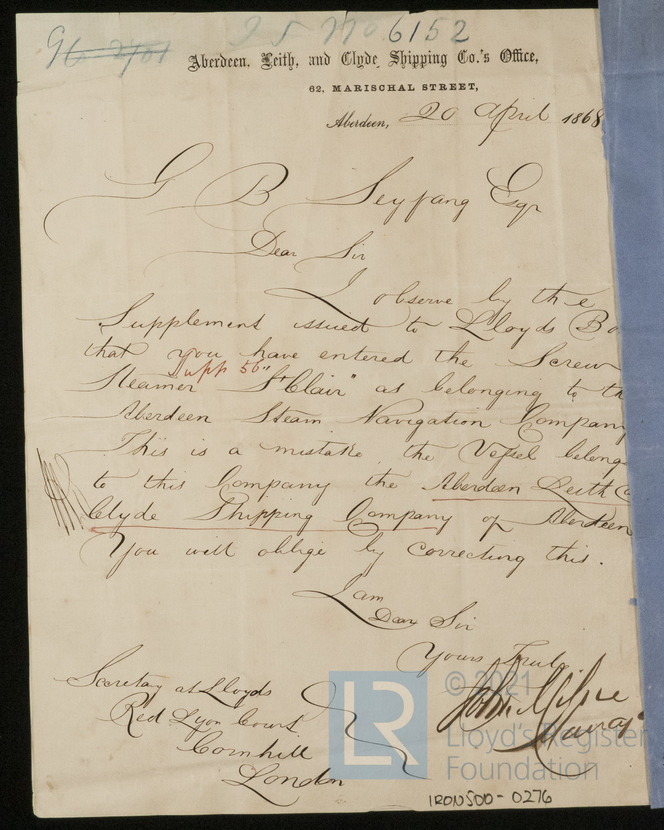 96-2701
25 770 6152
Aberdeen, Leith, and Clyde Shipping Co.'s Office,
62, MARISCHAL STREET,
Aberdeen, 20 April 1868
G B Seyfang Esqr
Dear Sir
I observe by the
Supplement issued to Lloyds Bo
that you have entered the Screw
Supp 56"
Steamer "St Clair" as belonging to th
Aberdeen Steam Navigation Company
This is a mistake the Vessel belong
to this Company the Aberdeen Leith &
Clyde Shipping Company of Aberdeen
You will oblige by correcting this.
I am
Dear Sir
Yours Truly
John Milne
Secretary at Lloyds
Red Lyon Court
Cornhill
London
LR
© 2021
Lloyd's Register
Foundation
IRON500-0276